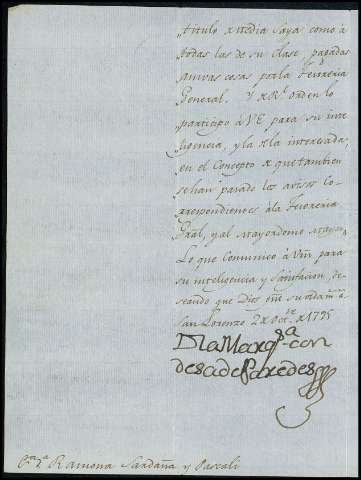 titulo de media saya como à
todas las de su clase, pagadas
ambas cosas por la Tesoreria
General. Y de Rl. orden lo
participo à VE para su inte
ligencia, y la de la interesada;
en el Concepto de que tambien
se han pasado los avisos Co-
rrespondientes à la Tesoreria
Gral, y al Mayordomo Mayor.
Lo que Comunico à Vm para
su inteligencia y Satisfacion, de-
seando que Dios gue su vida ms. as.
San Lorenzo 2 de Octre. de 1795
La Marqsa. con
desa de Paredes
Ramona Sardaña y Pascali